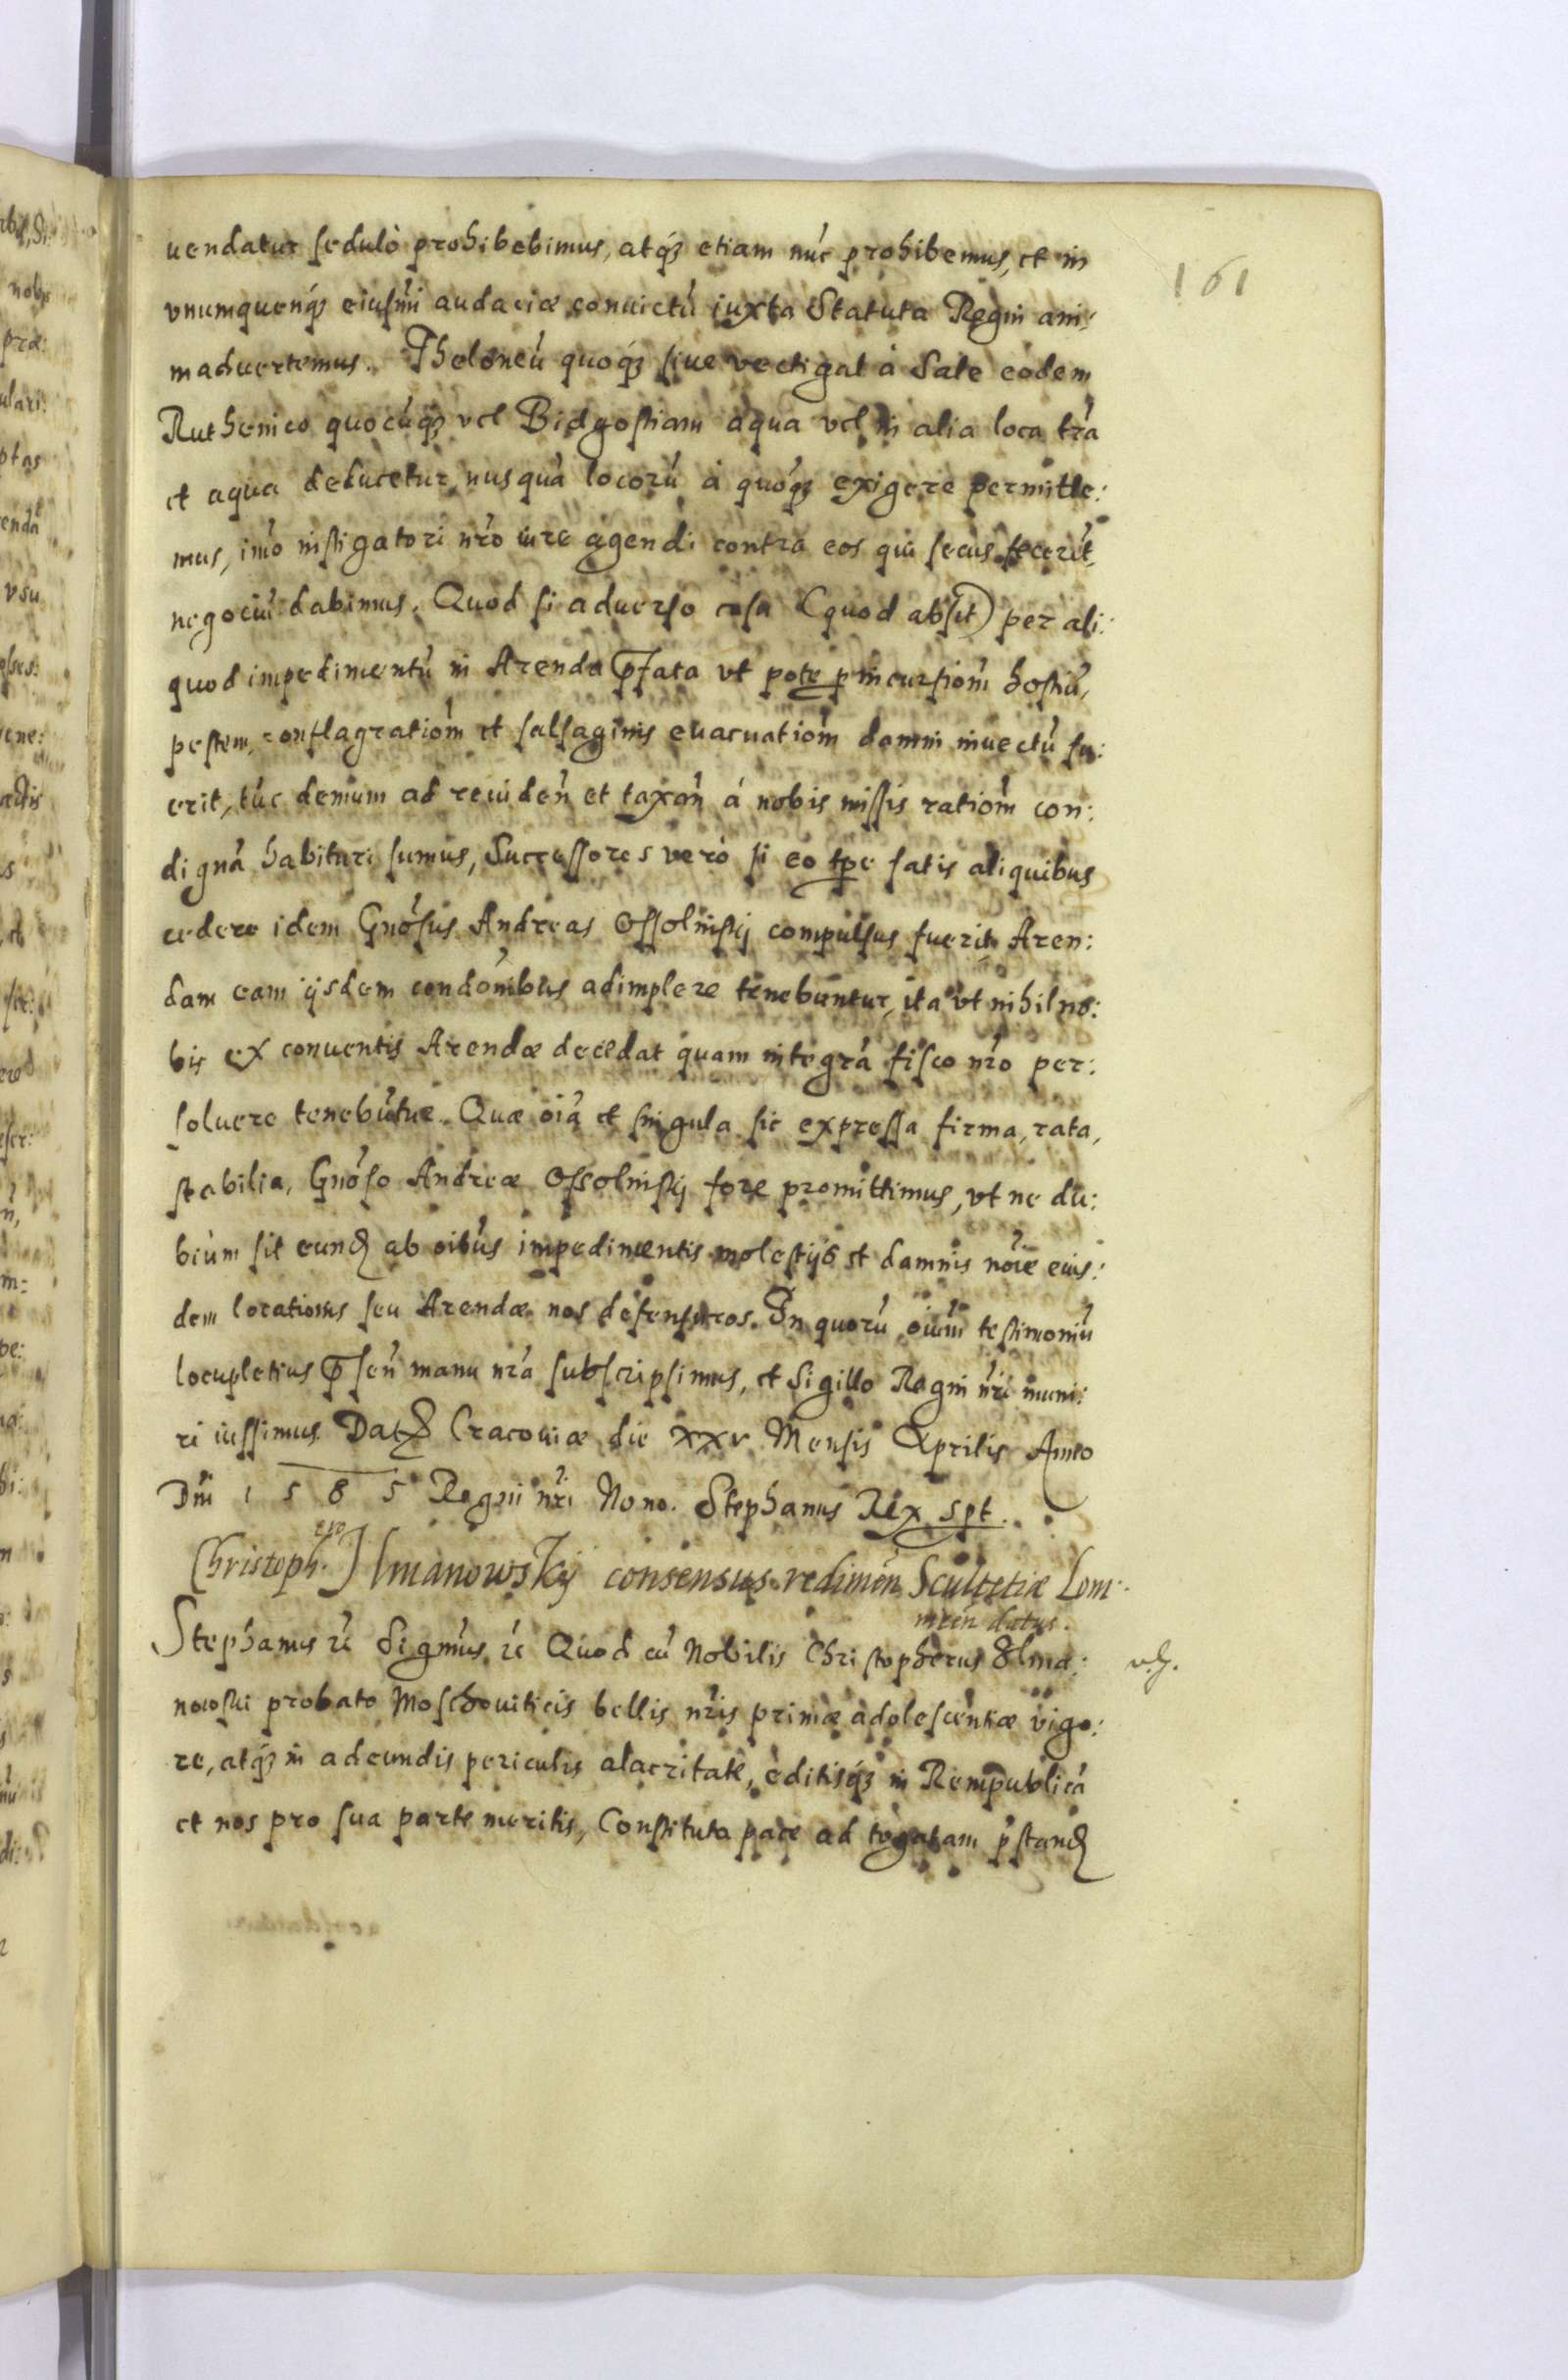 161
uendatur sedulò prohibebimus, atq́ꝫ etiam núc prohibemus, et in
vnumquenq́ꝫ eiusm̃i audaciæ conuictú iuxta Statuta Regni ani:
maduertemus. Theloneú quoq́ꝫ siue vectigal à Sale eodem
Ruthenico quocúq́ꝫ vel Bidgostiam aqua vel in alia loca trá
et aqua deducetur, nusquá locorú à quoq́ꝫ exigere permitte:
mus, imo instigatori nŕo iure agendi contra eos qui secus fecerĩt
negociú dabimus. Quod si aduerso casu (quod absit) per ali:
quod impedimentú in Arenda p̃fata vt pote p incursiom̃ hostiú,
pestem, conflagratiom̃ et salsaginis euacuatiom̃ damni inuectú fu:
erit, túc demum ad reuideñ et taxañ á nobis missis ratiom̃ con:
digná habituri sumus, Successores verò si eo tpe fatis aliquibus
cedere idem Gnósus Andreas Ossolinskij compulsus fuerit, Aren:
dam eam ijsdem condónibus adimplere tenebuntur, ita vt nihil no:
bis ex conuentis Arendæ decedat quam integrá fisco nŕo per:
soluere tenebútur. Quæ oiá et singula sic expressa firma, rata,
stabilia, Gnóso Andreæ Ossolinskij fore promittimus, vt ne du:
bium sit eundꝫ ab oibús impedimentis molestijs et damnis noíe eius:
dem locationis seu Arendæ nos defensuros. In quorú oiúm testimoniú
locupletius p̃señ manu nŕa subscripsimus, et Sigillo Regni nŕi muni:
ri iussimus. Datꝫ Cracouiæ die xxv Mensis Aprilis Anno
Dñi 1585 Regni nŕi Nono. Stephanus Rex spt.
Christoph. Jlmanowskij consensus redimeñ Scultetiæ Lom:
datus.
Stephanus ꝛc̃ Signm̃us ꝛc̃ Quod cú Nobilis Christopherus Ilma:
nowski probato Moschouiticis bellis nŕis primæ adolescentiæ vigo:
re, atq́ꝫ in adeundis periculis alacritate, editisq́ꝫ in Rempublicá
et nos pro sua parte meritis, Constituta pace ad togatam p̃standꝫ